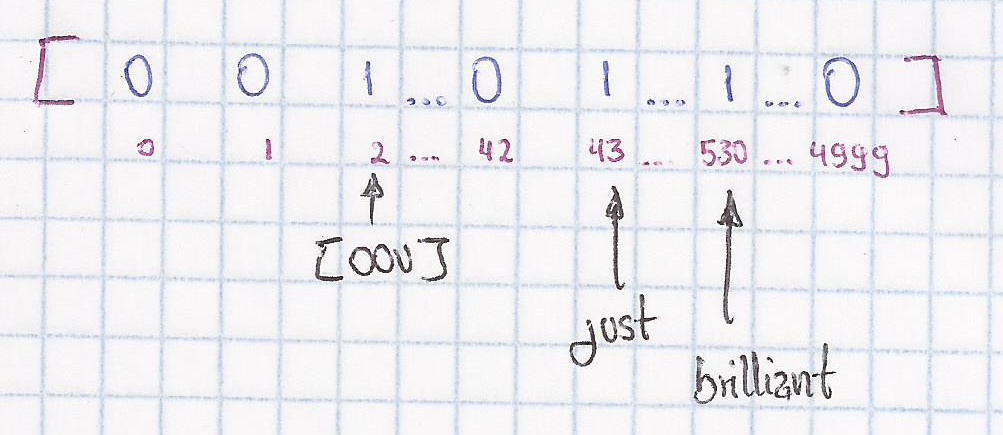 [ 0 0 1 ... 0 1 ... 1 ... 0 ]
0 1 2 ... 42 43 ... 530 ... 4999
[OOV]
just
brilliant